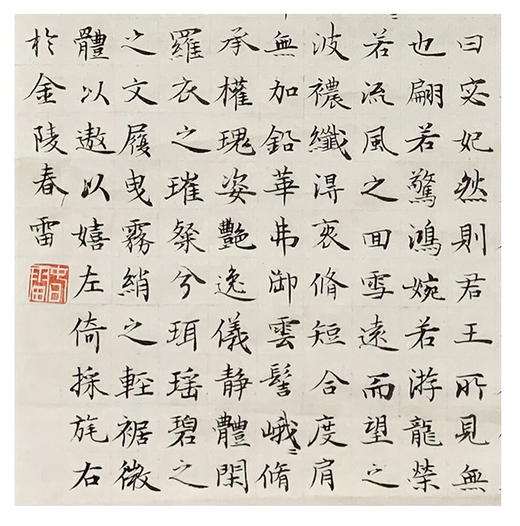 曰宓妃然則君王所見無
也翩若驚鴻婉若游龍榮
若流風之回雪遠而望之
波襛纖得衷脩短合度肩
無加鉛華弗御雲髻峨〻脩
承權瑰姿艷逸儀靜體閑
羅衣之璀粲兮珥瑤碧之
之文履曳霧綃之輕裾微
體以遨以嬉左倚採旄右
於金陵春雷